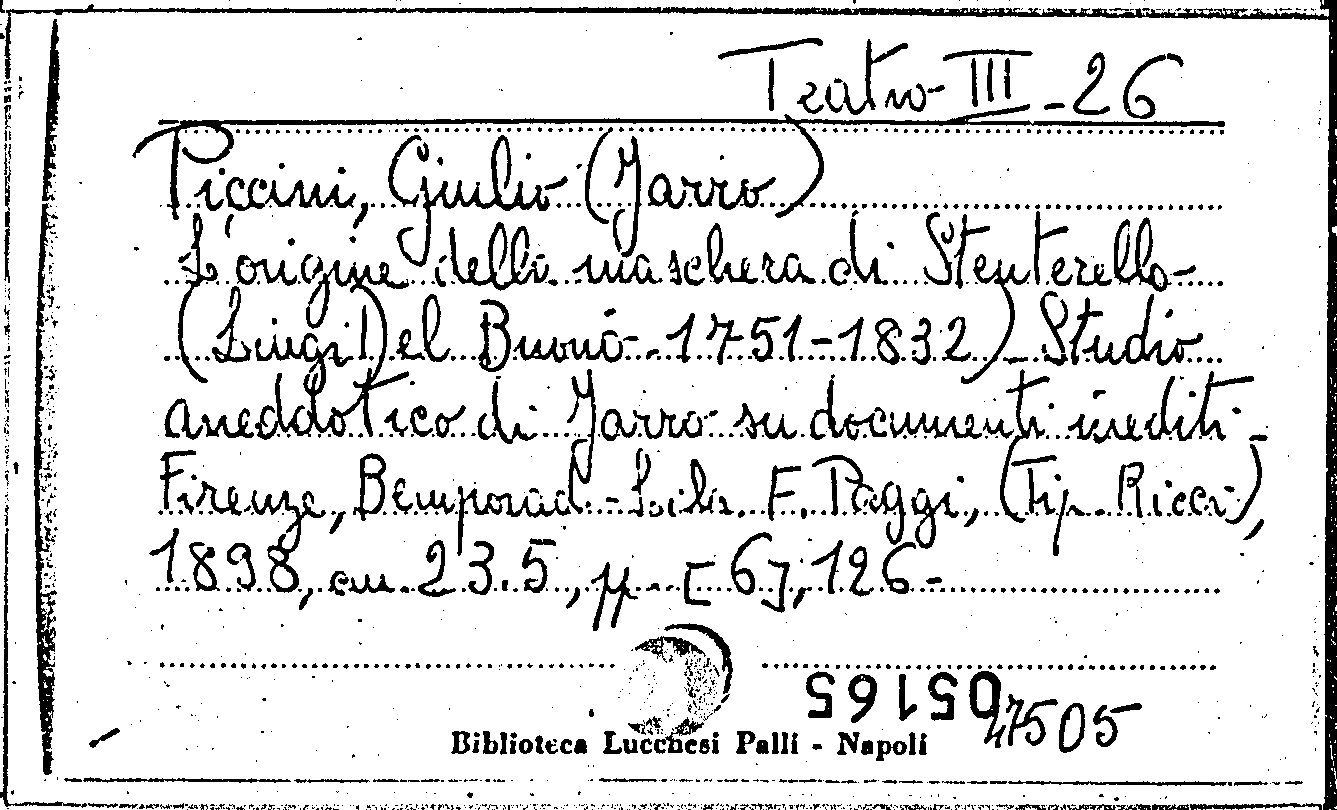 Teatro III - 26
Piccini, Giulio (Jarro)
L'origine della maschera di Stenterello -
(Luigi Del Buono - 1751-1832) Studio
aneddotico di Jarro su documenti inediti -
Firenze, Bemporad - Lib. F. Paggi, (Tip. Ricci),
1898, cm. 23.5, pp. [6], 126 -
05165
47505
Biblioteca Lucchesi Palli - Napoli